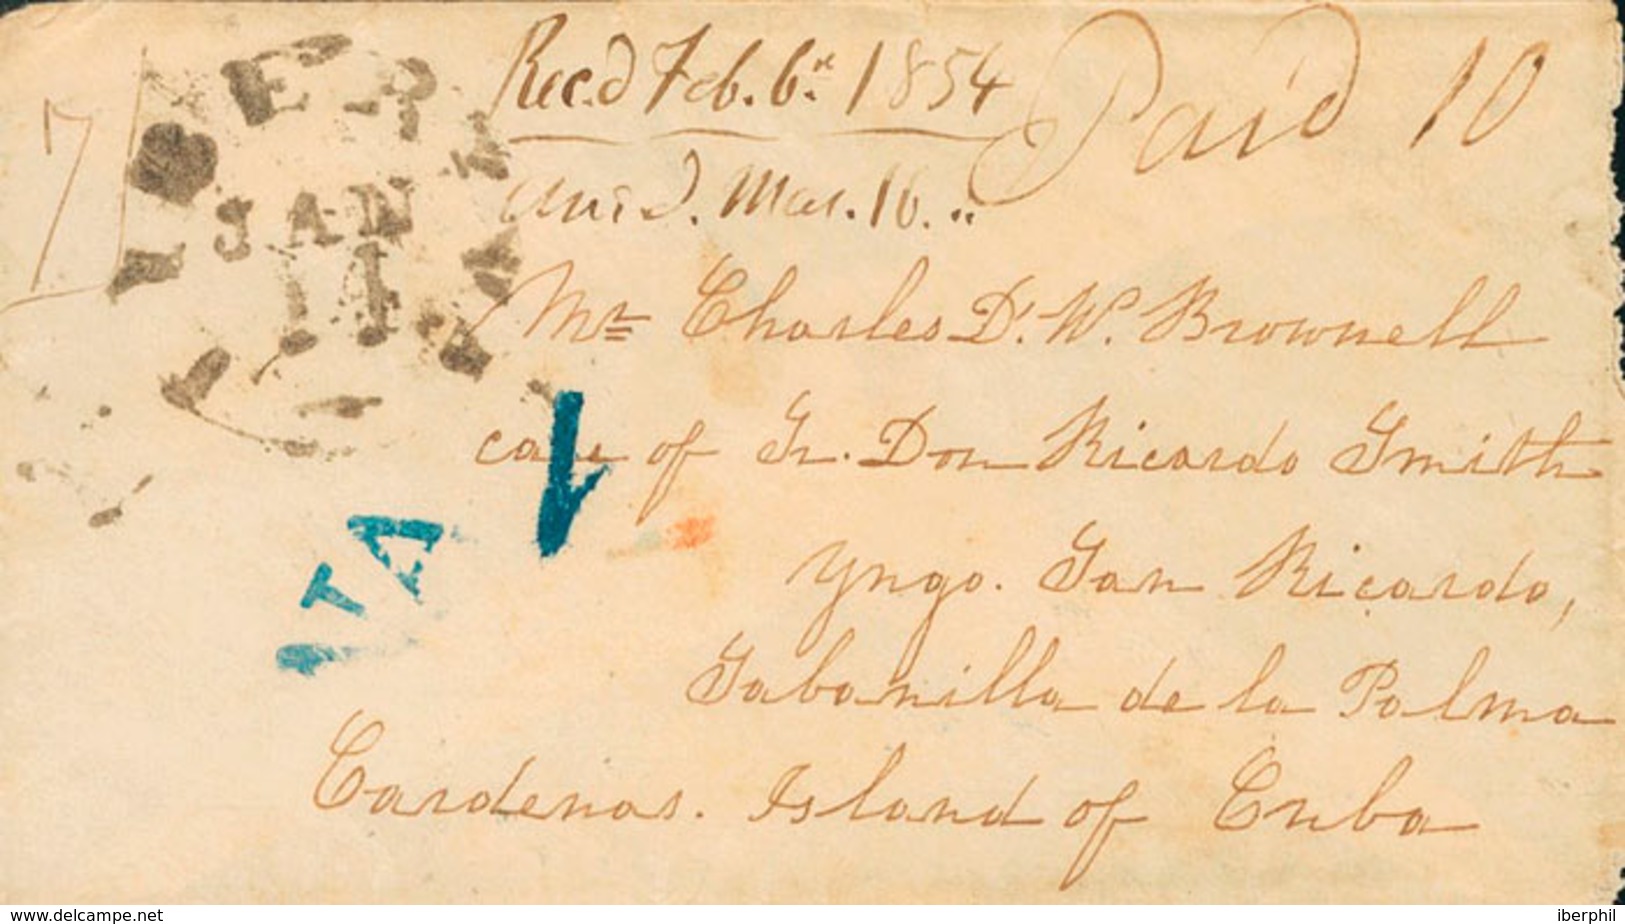 Rec.d Feb. 6. 1854
Paid 10
Mar. 16.
JAN
14
Mr Charles D. W. Brownell
care of Sr. Don Ricardo Smith
Yngo. San Ricardo,
Sabanilla de la Palma
Cardenas. Island of Cuba
www.delcampe.net
iberphil